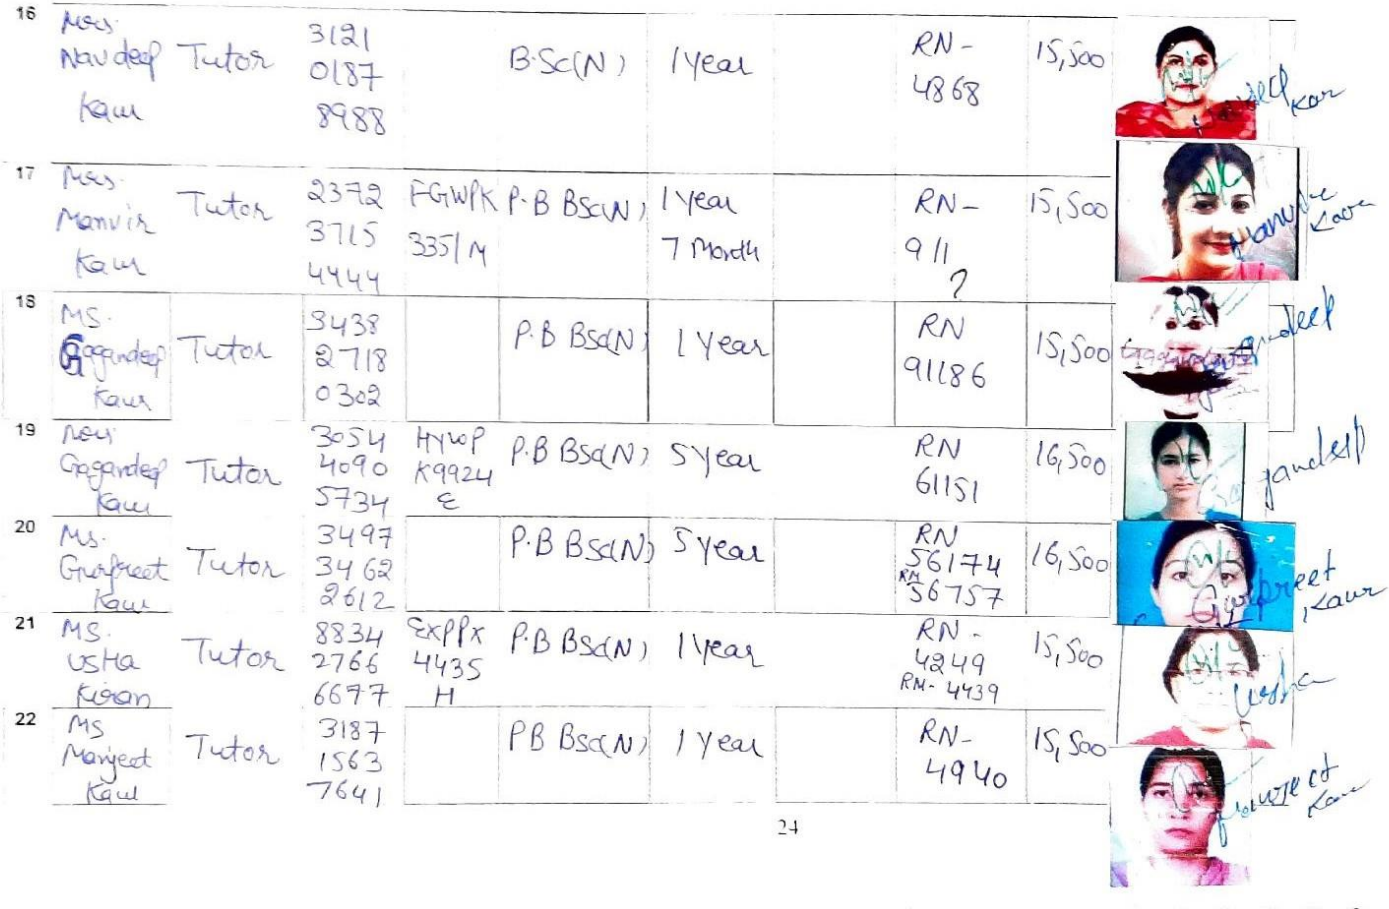 16 Mrs. Navdeep Kaur Tutor 3121 0187 8988 B.Sc(N) 1 Year RN- 4868 15,500
Navdeep Kaur
17 Mrs. Manvir Kaur Tutor 2372 3715 4444 FGWPK 3351M P.B BSc(N) 1 Year 7 Month RN- 911 ? 15,500
Manvir Kaur
18 MS. Gagandeep Kaur Tutor 3438 2718 0302 P.B BSc(N) 1 Year RN 91186 15,500
Gagandeep
19 Gagandeep Kaur Tutor 3054 4090 5734 HYWP K9924 E P.B BSc(N) 5 Year RN 61151 16,500
Gagandeep
20 Ms. Gurpreet Kaur Tutor 3497 3462 2612 P.B BSc(N) 5 Year RN 56174 RM 56757 16,500
Gurpreet Kaur
21 MS. USHA Kiran Tutor 8834 2766 6677 EXPPK 4435 H P.B BSc(N) 1 Year RN- 4249 RM- 4439 15,500
Usha
22 MS Manjeet Kaur Tutor 3187 1563 7641 PB BSc(N) 1 Year RN- 4940 15,500
Manjeet Kaur
24